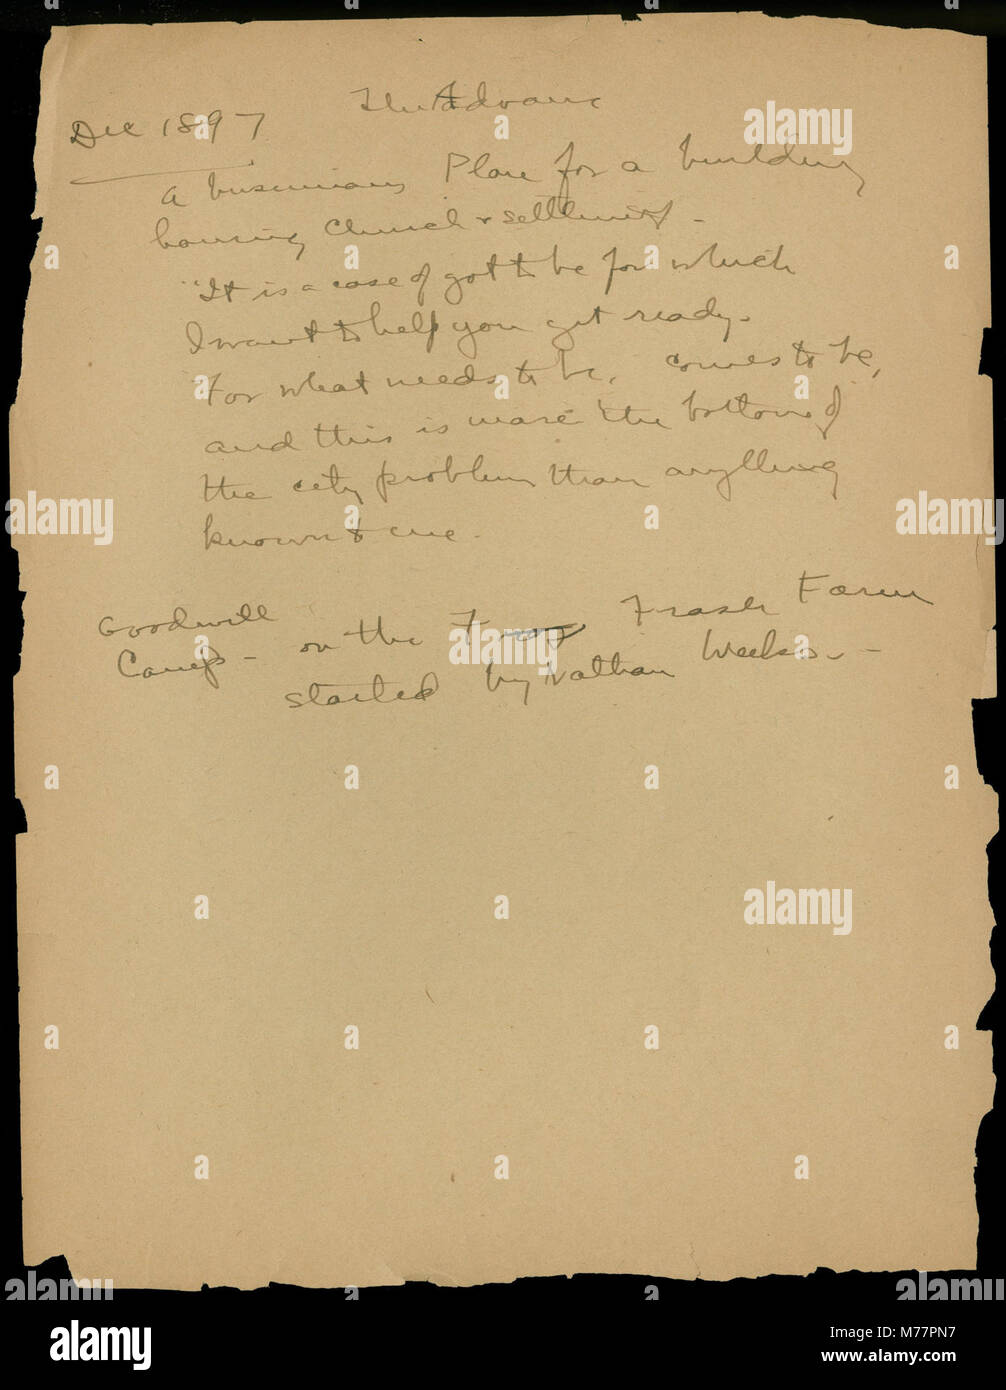 The Advance
Dec 1897
A businessmans Plan for a building
housing Church & settlement -
"It is a case of got to be for which
I want to help you get ready.
For what needs to be, comes to be,
and this is more the bottom of
the city problem than anything
known to me.
Goodwill
Camp - on the Frasle Farm
started by Nathan Weeks. -
alamy
Image ID: M77PN7
www.alamy.com